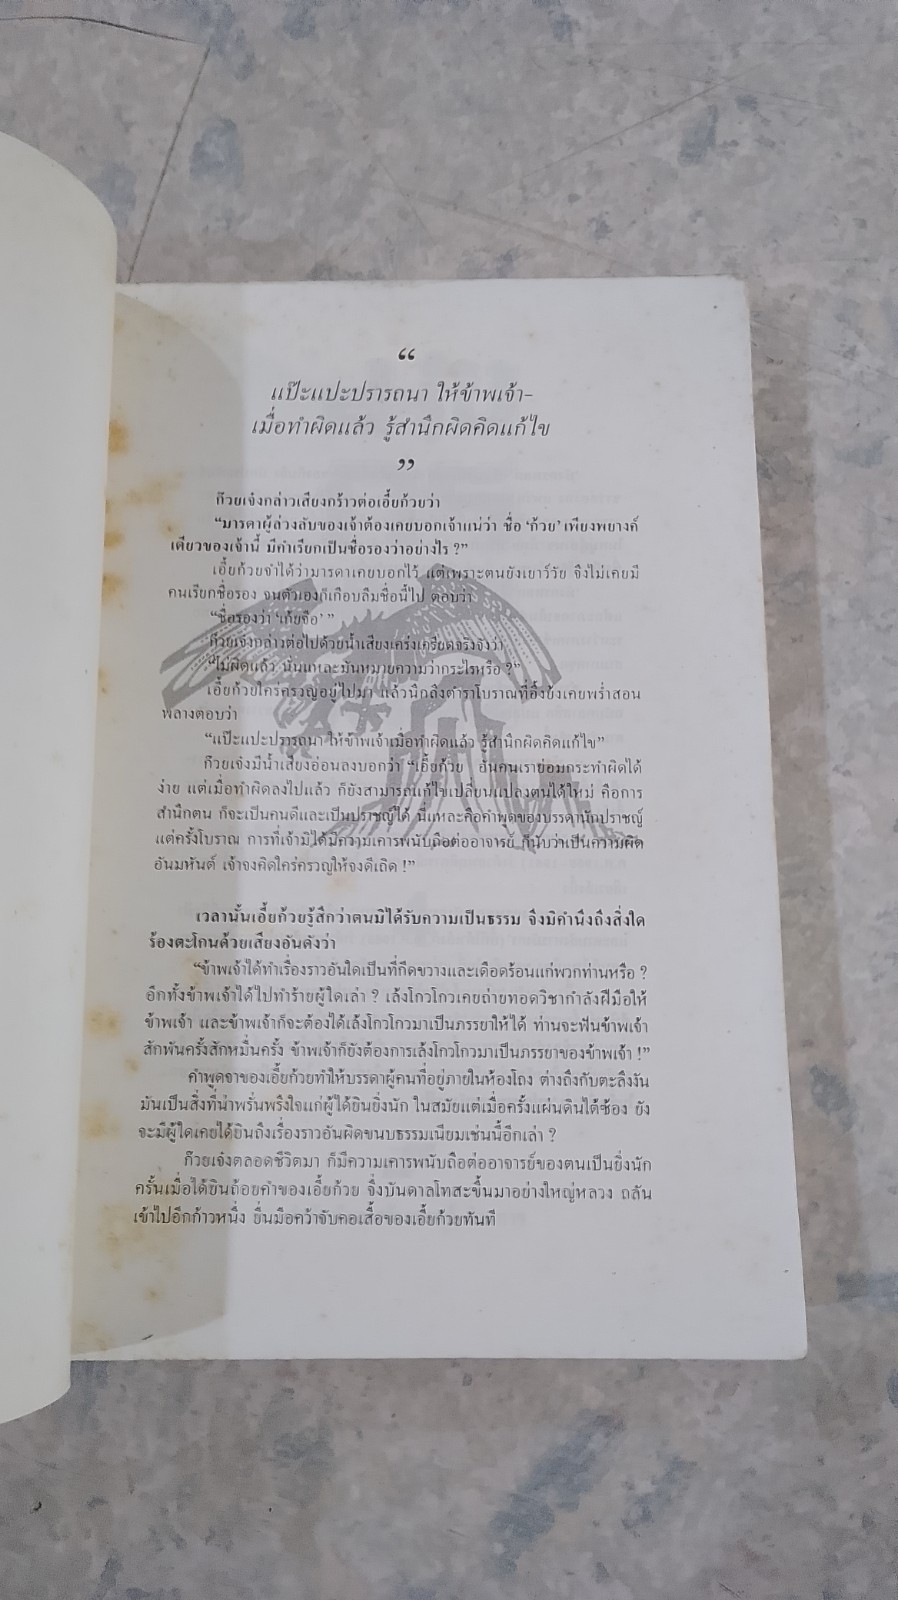 “
แป๊ะแปะปรารถนา ให้ข้าพเจ้า-
เมื่อทำผิดแล้ว รู้สำนึกผิดคิดแก้ไข
”
ก๊วยเจ๋งกล่าวเสียงกร้าวต่อเอี้ยก้วยว่า
“มารดาผู้ล่วงลับของเจ้าต้องเคยบอกเจ้าแน่ว่า ชื่อ ‘ก้วย’ เพียงพยางค์
เดียวของเจ้านี้ มีคำเรียกเป็นชื่อรองว่าอย่างไร ?”
เอี้ยก้วยจำได้ว่ามารดาเคยบอกไว้ แต่เพราะตนยังเยาว์วัย จึงไม่เคยมี
คนเรียกชื่อรอง จนตัวเองก็เกือบลืมชื่อนี้ไป ตอบว่า
“ชื่อรองว่า ‘เก้ยจือ’ ”
ก๊วยเจ๋งกล่าวต่อไปด้วยน้ำเสียงเคร่งเครียดจริงจังว่า
“ไม่ผิดแล้ว นั่นแหละมันหมายความว่ากระไรหรือ ?”
เอี้ยก้วยใคร่ครวญอยู่ไปมา แล้วนึกถึงตำราโบราณที่อึ้งย้งเคยพร่ำสอน
พลางตอบว่า
“แป๊ะแปะปรารถนา ให้ข้าพเจ้าเมื่อทำผิดแล้ว รู้สำนึกผิดคิดแก้ไข”
ก๊วยเจ๋งมีน้ำเสียงอ่อนลงบอกว่า “เอี้ยก้วย อันคนเราย่อมกระทำผิดได้
ง่าย แต่เมื่อทำผิดลงไปแล้ว ก็ยังสามารถแก้ไขเปลี่ยนแปลงตนได้ใหม่ คือการ
สำนึกตน ก็จะเป็นคนดีและเป็นปราชญ์ได้ นี่แหละคือคำพูดของบรรดานักปราชญ์
แต่ครั้งโบราณ การที่เจ้ามิได้มีความเคารพนับถือต่ออาจารย์ ก็นับว่าเป็นความผิด
อันมหันต์ เจ้าจงคิดใคร่ครวญให้จงดีเถิด !”
เวลานั้นเอี้ยก้วยรู้สึกว่าตนมิได้รับความเป็นธรรม จึงมิคำนึงถึงสิ่งใด
ร้องตะโกนด้วยเสียงอันดังว่า
“ข้าพเจ้าได้ทำเรื่องราวอันใดเป็นที่กีดขวางและเดือดร้อนแก่พวกท่านหรือ ?
อีกทั้งข้าพเจ้าได้ไปทำร้ายผู้ใดเล่า ? เล้งโกวโกวเคยถ่ายทอดวิชากำลังฝีมือให้
ข้าพเจ้า และข้าพเจ้าก็จะต้องได้เล้งโกวโกวมาเป็นภรรยาให้ได้ ท่านจะฟันข้าพเจ้า
สักพันครั้งสักหมื่นครั้ง ข้าพเจ้าก็ยังต้องการเล้งโกวโกวมาเป็นภรรยาของข้าพเจ้า !”
คำพูดจาของเอี้ยก้วยทำให้บรรดาผู้คนที่อยู่ภายในห้องโถง ต่างถึงกับตะลึงงัน
มันเป็นสิ่งที่น่าพรั่นพรึงใจแก่ผู้ได้ยินยิ่งนัก ในสมัยแต่เมื่อครั้งแผ่นดินไต้ซ้อง ยัง
จะมีผู้ใดเคยได้ยินถึงเรื่องราวอันผิดขนบธรรมเนียมเช่นนี้อีกเล่า ?
ก๊วยเจ๋งตลอดชีวิตมา ก็มีความเคารพนับถือต่ออาจารย์ของตนเป็นยิ่งนัก
ครั้นเมื่อได้ยินถ้อยคำของเอี้ยก้วย จึ่งบันดาลโทสะขึ้นมาอย่างใหญ่หลวง ถลัน
เข้าไปอีกก้าวหนึ่ง ยื่นมือคว้าจับคอเสื้อของเอี้ยก้วยทันที